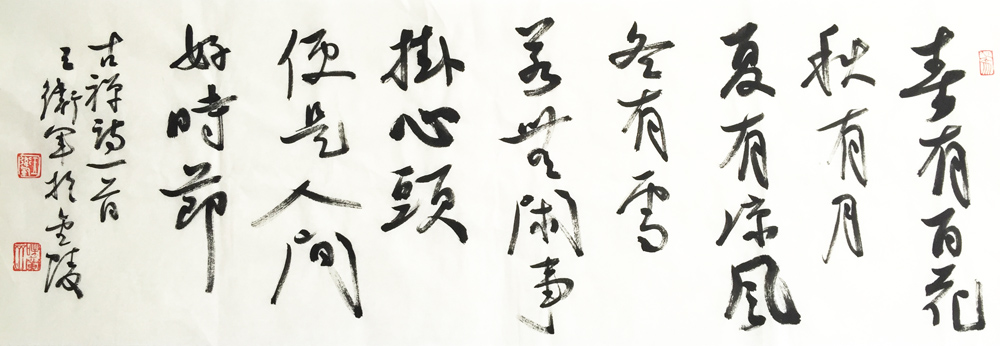 春有百花
秋有月
夏有凉风
冬有雪
若无闲事
掛心頭
便是人间
好時節
古禅詩一首
王衛军於金陵